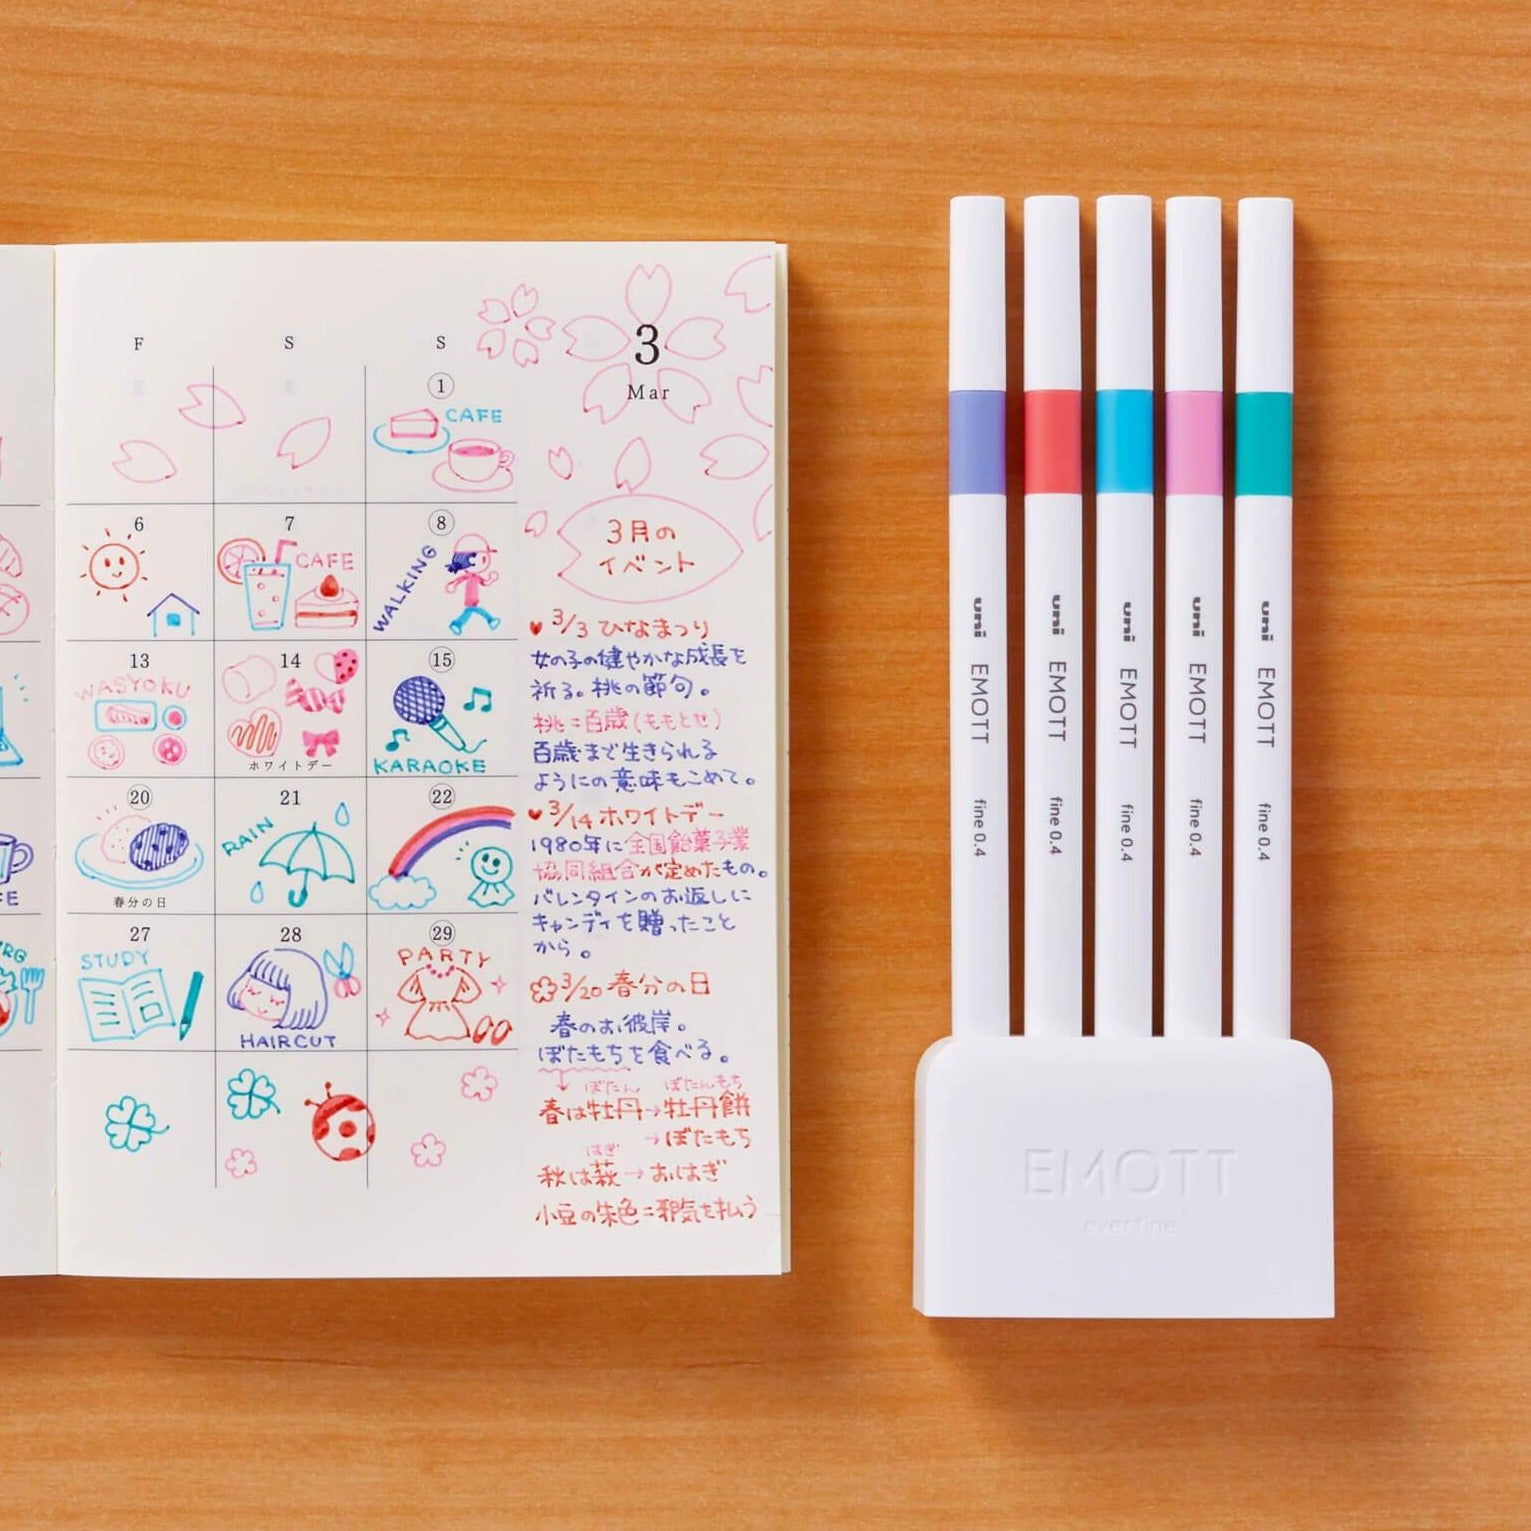 F S S
3
Mar
1
CAFE
6 7 8
CAFE
WALKING
3月の
イベント
13 14 15
WASYOKU
ホワイトデー
KARAOKE
20 21 22
RAIN
春分の日
27 28 29
STUDY
HAIRCUT
PARTY
3/3 ひなまつり
女の子の健やかな成長を
祈る。桃の節句。
桃=百歳(ももとせ)
百歳まで生きられる
ようにの意味もこめて。
3/14 ホワイトデー
1980年に全国飴菓子業
協同組合が定めたもの。
バレンタインのお返しに
キャンディを贈ったこと
から。
3/20 春分の日
春のお彼岸。
ぼたもちを食べる。
ぼたん ぼたんもち
春は牡丹→牡丹餅
→ぼたもち
はぎ
秋は萩→おはぎ
小豆の朱色=邪気を払う
uni EMOTT fine 0.4
uni EMOTT fine 0.4
uni EMOTT fine 0.4
uni EMOTT fine 0.4
uni EMOTT fine 0.4
EMOTT
ever fine